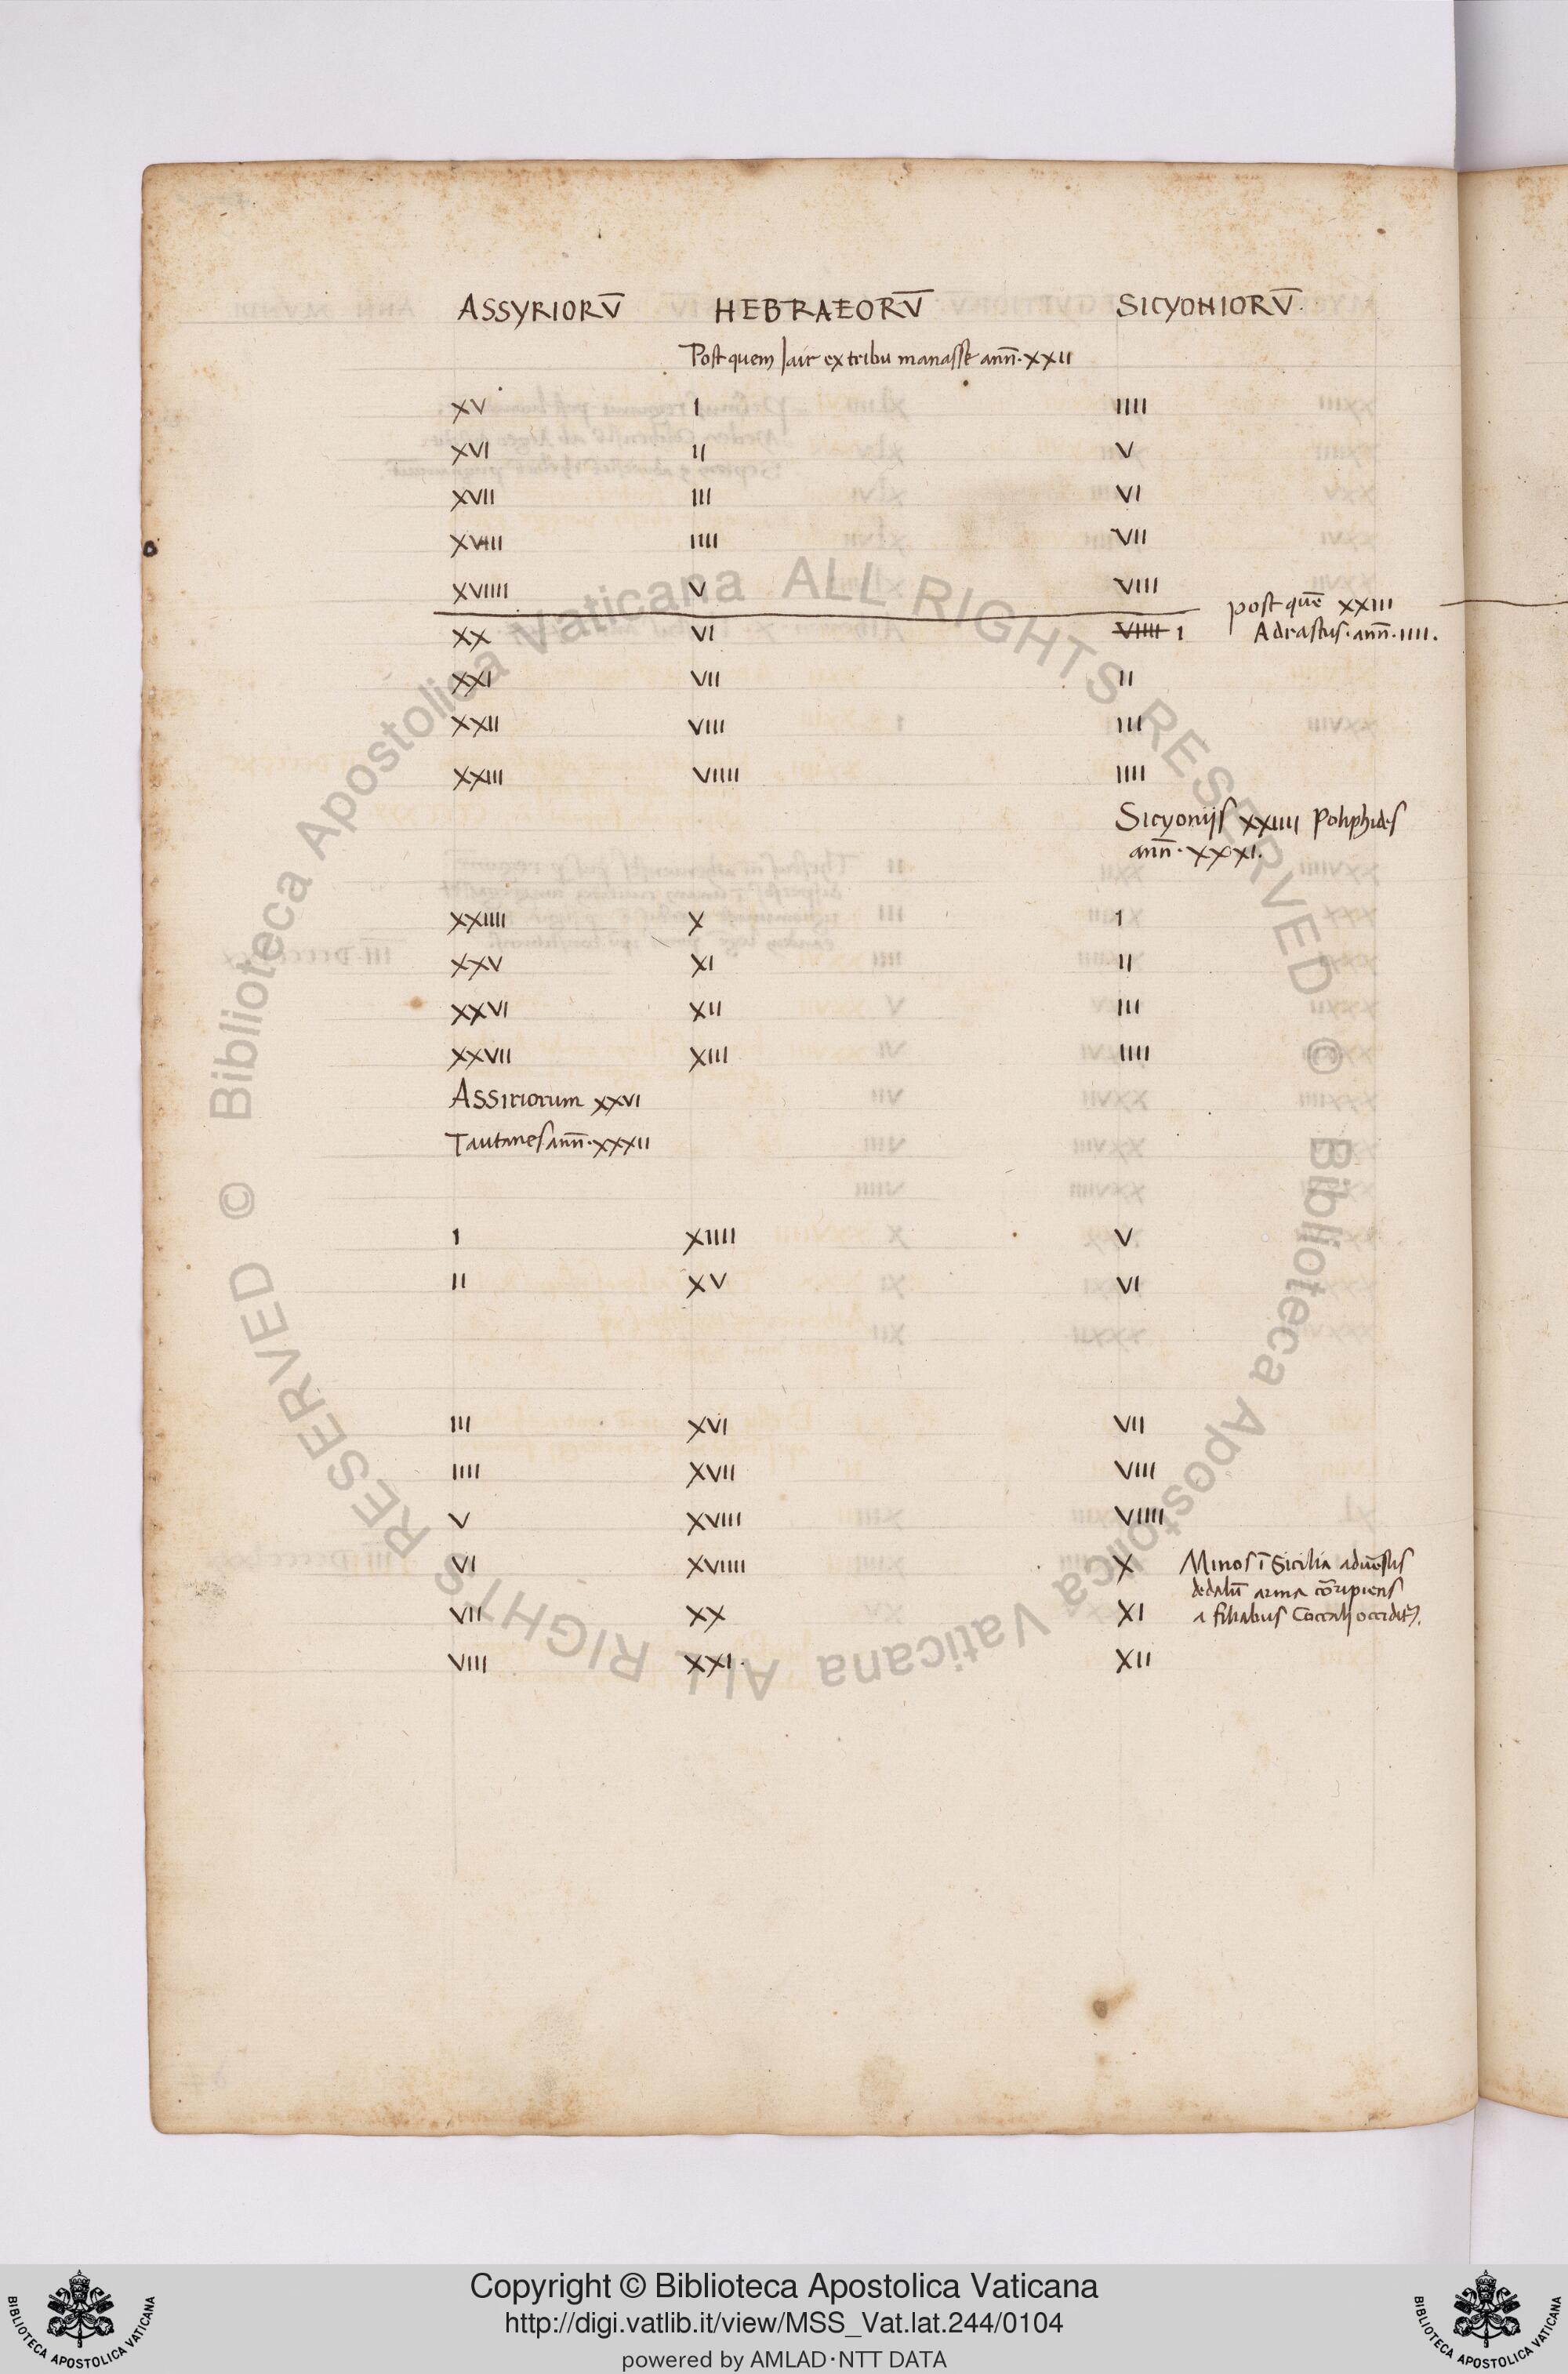 ASSYRIORV̄ HEBRAEORV̄ SICYONIORV̄.
Post quem Jair ex tribu manasse ann̄. XXII
XV I IIII
XVI II V
XVII III VI
XVIII IIII VII
XVIIII V VIII
post quē XXIII
XX VI VIIII I Adrastus. ann̄. IIII.
XXI VII II
XXII VIII III
XXIII VIIII IIII
Sicyonijs XXIIII Poliphides
ann̄. XXXI.
XXIIII X I
XXV XI II
XXVI XII III
XXVII XIII IIII
Assiriorum XXVI
Tautanes ann̄. XXXII
I XIIII V
II XV VI
III XVI VII
IIII XVII VIII
V XVIII VIIII
VI XVIIII X Minos ī Sicilia
dedalū arma
VII XX XI a filiabus Coccali
VIII XXI. XII
© Biblioteca Apostolica Vaticana ALL RIGHTS RESERVED
© Biblioteca Apostolica Vaticana ALL RIGHTS RESERVED
BIBLIOTECA APOSTOLICA VATICANA
Copyright © Biblioteca Apostolica Vaticana
http://digi.vatlib.it/view/MSS_Vat.lat.244/0104
powered by AMLAD·NTT DATA
BIBLIOTECA APOSTOLICA VATICANA